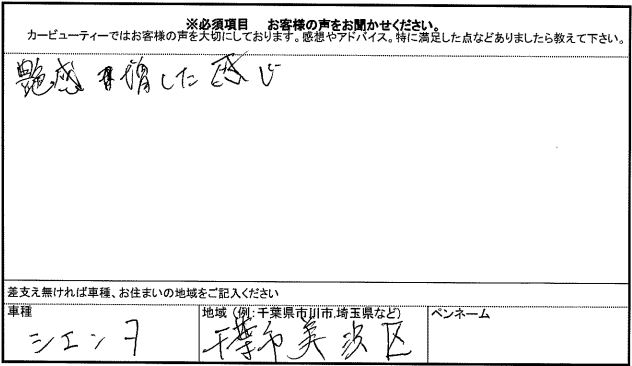 ※必須項目　お客様の声をお聞かせください。
カービューティーではお客様の声を大切にしております。感想やアドバイス。特に満足した点などありましたら教えて下さい。
艶感が増した感じ
差支え無ければ車種、お住まいの地域をご記入ください
車種
シエンタ
地域（例：千葉県市川市.埼玉県など）
千葉市美浜区
ペンネーム